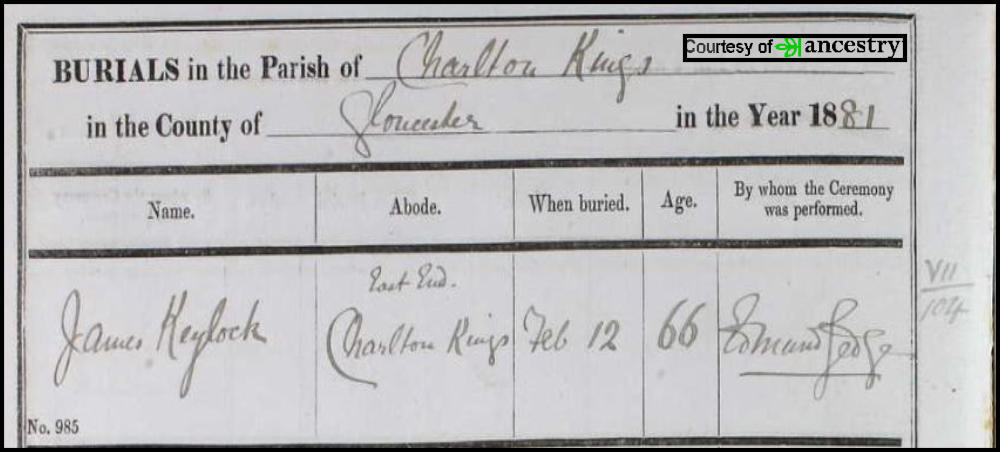 Courtesy of ancestry
BURIALS in the Parish of Charlton Kings
in the County of Gloucester in the Year 1881
Name. Abode. When buried. Age. By whom the Ceremony was performed.
East End.
James Keylock Charlton Kings Feb 12 66 Edmund
VII
104
No. 985